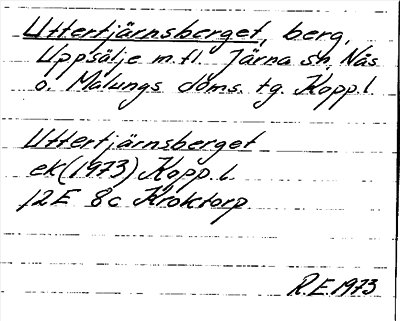 Uttertjärnsberget, berg,
Uppsälje m.fl. Järna sn, Nås
o. Malungs doms. tg. Kopp.l.
Uttertjärnsberget
ek(1973) Kopp.l.
12E 8c Kroktorp
R.E.1973